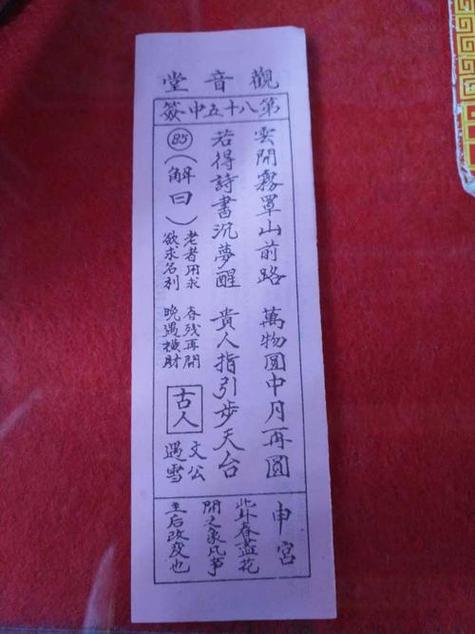 觀音堂
第八十五中簽
雲開霧罩山前路 萬物圓中月再圓
若得詩書沉夢醒 貴人指引步天台
85
(解曰)
老者用求 春残再開
欲求名利 晚遇横財
古人
文公
遇雪
申宮
此卦春盡花
開之象凡事
主后改变也